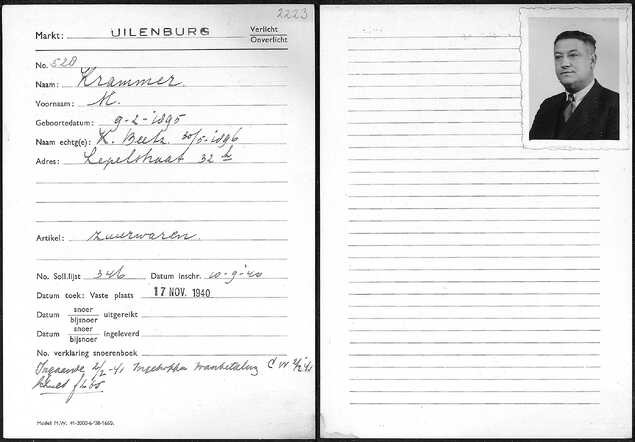 2223
Markt: UILENBURG Verlicht
Onverlicht
No. 528
Naam: Krammer.
Voornaam: M.
Geboortedatum: 9-2-1895
Naam echtg(e): K. Beetz. 30/5-1896
Adres: Lepelstraat 32 h
Artikel: Zuurwaren.
No. Soll.lijst 346 Datum inschr. 10-9-'40
Datum toek: Vaste plaats 17 NOV. 1940
Datum snoer uitgereikt
bijsnoer
Datum snoer ingeleverd
bijsnoer
No. verklaring snoerenboek
Ingaande 2/2-41 Ingetrokken wanbetaling C W 2/2 '41
schuld
Model M.W. 41-3000-6-'38-1660.